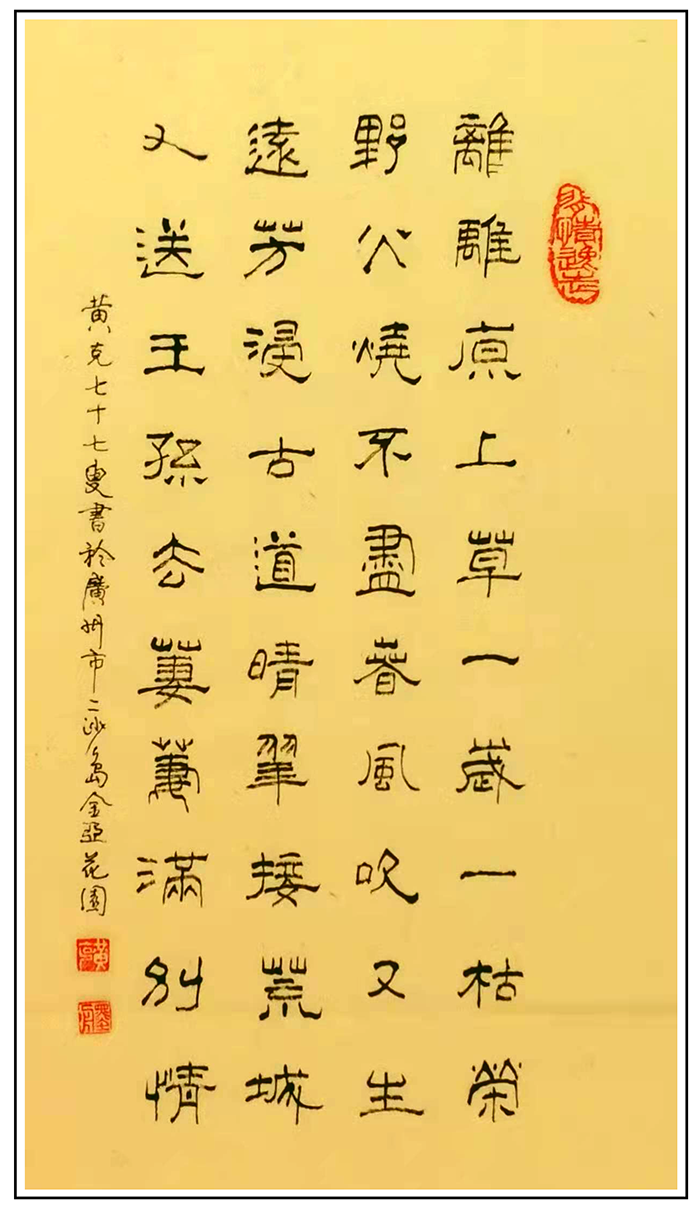 離離原上草一歲一枯榮
野火燒不盡春風吹又生
遠芳浸古道晴翠接荒城
又送王孫去萋萋滿別情
黄克七十七叟書於廣州市二沙島金亞花園